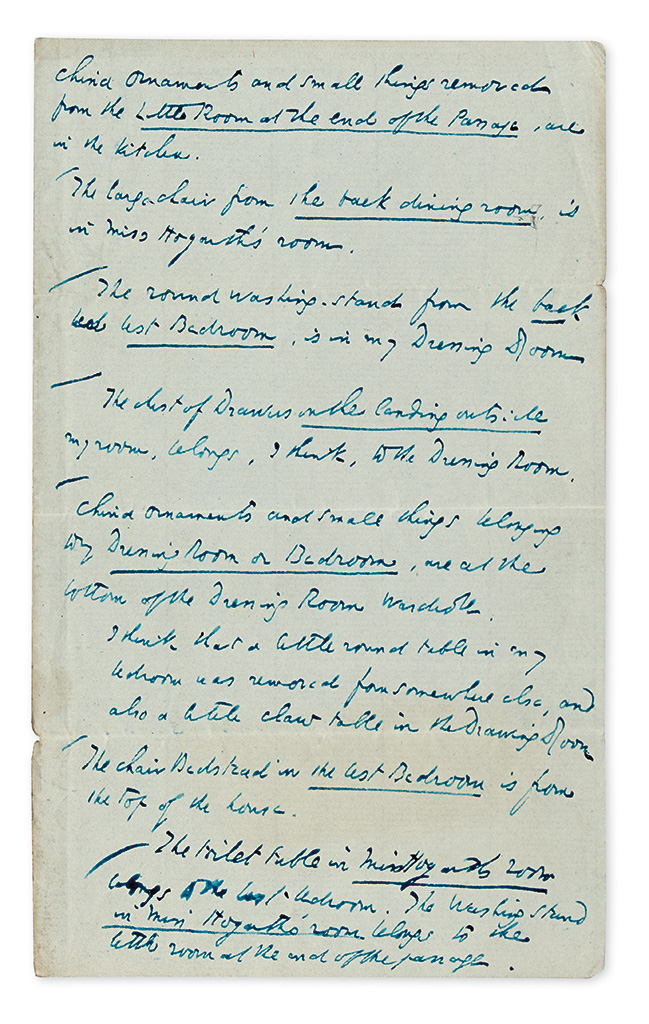 China ornaments and small things removed
from the Little Room at the end of the Passage, are
in the kitchen.
The large chair from the back dining room, is
in Miss Hogarth's room.
The round washing-stand from the back
best Bedroom, is in my Dressing Room
The chest of Drawers on the landing outside
my room, belongs, I think, to the Dressing Room.
China ornaments and small things belonging
to my Dressing Room or Bedroom, are at the
bottom of the Dressing Room Wardrobe.
I think that a little round table in my
bedroom was removed from somewhere else, and
also a little claw table in the Drawing Room
The chair Bedstead in the best Bedroom is from
the top of the house.
The toilet table in Miss Hogarth's room
belongs to the best bedroom. The washing stand
in Miss Hogarth's room belongs to the
little room at the end of the passage.